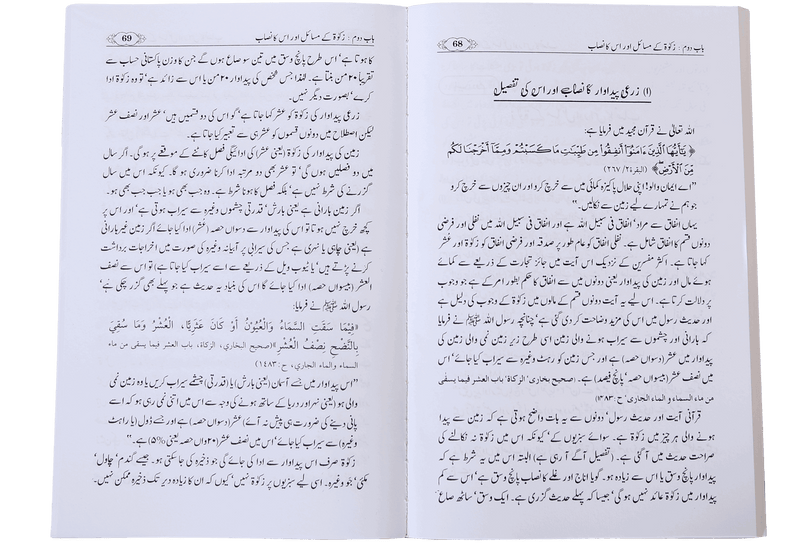 68
باب دوم: زکوٰۃ کے مسائل اور اس کا نصاب
(۱) زرعی پیداوار کا نصاب اور اس کی تفصیل
اللہ تعالیٰ نے قرآن مجید میں فرمایا ہے:
﴿ يَٰٓأَيُّهَا ٱلَّذِينَ ءَامَنُوٓا۟ أَنفِقُوا۟ مِن طَيِّبَٰتِ مَا كَسَبْتُمْ وَمِمَّآ أَخْرَجْنَا لَكُم
مِّنَ ٱلْأَرْضِ﴾ (البقرۃ ۲/ ۲۶۷)
”اے ایمان والو! اپنی حلال پاکیزہ کمائی میں سے خرچ کرو اور ان چیزوں سے خرچ کرو
جو ہم نے تمہارے لیے زمین سے نکالیں۔“
یہاں انفاق سے مراد‘ انفاق فی سبیل اللہ ہے اور انفاق فی سبیل اللہ میں نفلی اور فرضی
دونوں قسم کا انفاق شامل ہے۔ نفلی انفاق کو عام طور پر صدقہ اور فرضی انفاق کو زکوٰۃ اور عُشر
کہا جاتا ہے۔ اکثر مفسرین کے نزدیک اس آیت میں جائز تجارت کے ذریعے سے کمائے
ہوئے مال اور زمین کی پیداوار یعنی دونوں میں سے انفاق کا حکم بطور امر کے ہے جو وجوب
پر دلالت کرتا ہے۔ اس لیے یہ آیت دونوں قسم کے مالوں میں زکوٰۃ کے وجوب کی دلیل ہے
اور حدیث رسول میں اس کی مزید وضاحت کر دی گئی ہے‘ چنانچہ رسول اللہ ﷺ نے فرمایا
کہ بارانی اور چشموں سے سیراب ہونے والی زمین اسی طرح زیر زمین نمی والی زمین کی
پیداوار میں عشر (دسواں حصہ) ہے اور جس زمین کو رہٹ وغیرہ سے سیراب کیا جائے‘ اس
میں نصف عشر (بیسواں حصہ‘ پانچ فیصد) ہے۔ (صحیح بخاری‘ الزکاۃ‘ باب العشر فیما یسقی
من ماء السماء و الماء الجاری‘ ح: ۱۴۸۳)
قرآنی آیت اور حدیث رسول‘ دونوں سے یہ بات واضح ہوتی ہے کہ زمین سے پیدا
ہونے والی ہر چیز میں زکوٰۃ ہے۔ سوائے سبزیوں کے‘ کیونکہ اس میں زکوٰۃ نہ نکالنے کی
صراحت حدیث میں آ گئی ہے۔ (تفصیل آگے آ رہی ہے) البتہ اس میں یہ شرط ہے کہ
پیداوار پانچ وسق یا اس سے زیادہ ہو۔ گویا اناج اور غلے کا نصاب پانچ وسق ہے‘ اس سے کم
پیداوار میں زکوٰۃ عائد نہیں ہو گی‘ جیسا کہ پہلے حدیث گزری ہے۔ ایک وسق‘ ساٹھ صاع
69
باب دوم: زکوٰۃ کے مسائل اور اس کا نصاب
کا ہوتا ہے‘ اس طرح پانچ وسق میں تین سو صاع ہوں گے جن کا وزن پاکستانی حساب سے
تقریباً ۲۰ من بنتا ہے۔ لہٰذا جس شخص کی پیداوار ۲۰ من یا اس سے زائد ہے‘ تو وہ زکوٰۃ ادا
کرے‘ بصورت دیگر نہیں۔
زرعی پیداوار کی زکوٰۃ کو عشر کہا جاتا ہے‘ گو اس کی دو قسمیں ہیں‘ عشر اور نصف عشر
لیکن اصطلاح میں دونوں قسموں کو عشر ہی سے تعبیر کیا جاتا ہے۔
زمین کی پیداوار کی زکوٰۃ (یعنی عشر) کی ادائیگی فصل کاٹنے کے موقعے پر ہو گی۔ اگر سال
میں دو فصلیں ہوں گی‘ تو عشر بھی دو مرتبہ ادا کرنا ضروری ہو گا۔ کیونکہ اس میں سال
گزرنے کی شرط نہیں ہے‘ بلکہ فصل کا ہونا شرط ہے۔ وہ جب بھی ہو یا جب جب بھی ہو۔
اگر زمین بارانی ہے یعنی بارش‘ قدرتی چشموں وغیرہ سے سیراب ہوتی ہے‘ اور اس پر
کچھ خرچ نہیں ہوتا تو اس کی پیداوار سے دسواں حصہ (عشر) ادا کیا جائے گا‘ اگر زمین غیر بارانی
ہے (یعنی چاہی یا نہری ہے جس کی سیرابی پر آبیانہ وغیرہ کی صورت میں اخراجات برداشت
کرنے پڑتے ہیں‘ یا ٹیوب ویل کے ذریعے سے اسے سیراب کیا جاتا ہے) تو اس سے نصف
العشر (بیسواں حصہ) ادا کیا جائے گا اس کی بنیاد یہ حدیث ہے جو پہلے بھی گزر چکی ہے‘
رسول اللہ ﷺ نے فرمایا:
«فِيمَا سَقَتِ السَّمَاءُ وَالْعُيُونُ أَوْ كَانَ عَثَرِيًّا، الْعُشْرُ وَمَا سُقِيَ
بِالنَّضْحِ نِصْفُ الْعُشْرِ» (صحیح البخاري، الزکاة، باب العشر فیما یسقی من ماء
السماء والماء الجاري، ح: ۱۴۸۳)
”اس پیداوار میں جسے آسمان (یعنی بارش) یا (قدرتی) چشمے سیراب کریں یا وہ زمین نمی
والی ہو (یعنی نہر اور دریا کے ساتھ ہونے کی وجہ سے اس میں اتنی نمی رہتی ہو کہ اسے
پانی دینے کی ضرورت ہی پیش نہ آئے) عشر (دسواں حصہ) ہے اور جسے ڈول (یا راہٹ
وغیرہ) سے سیراب کیا جائے‘ اس میں نصف عشر (۲۰واں حصہ یعنی ۵%) ہے۔“
زکوٰۃ صرف اس پیداوار سے ادا کی جائے گی جو ذخیرہ کی جا سکتی ہو۔ جیسے گندم‘ چاول‘
مکئی‘ جَو وغیرہ۔ اسی لیے سبزیوں پر زکوٰۃ نہیں‘ کیوں کہ ان کا زیادہ دیر تک ذخیرہ ممکن نہیں۔